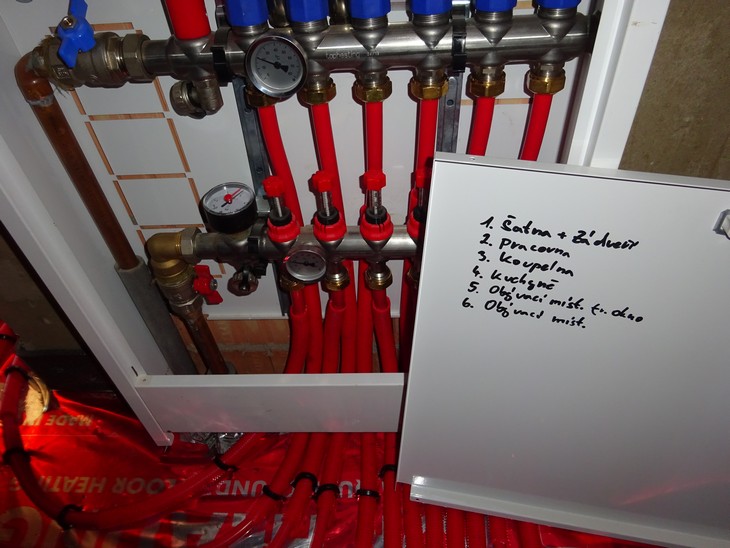 1. Šatna + Zádveří
2. Pracovna
3. Koupelna
4. Kuchyně
5. Obývací míst. fr. okno
6. Obývací míst.
MADE IN
FLOOR HEATING